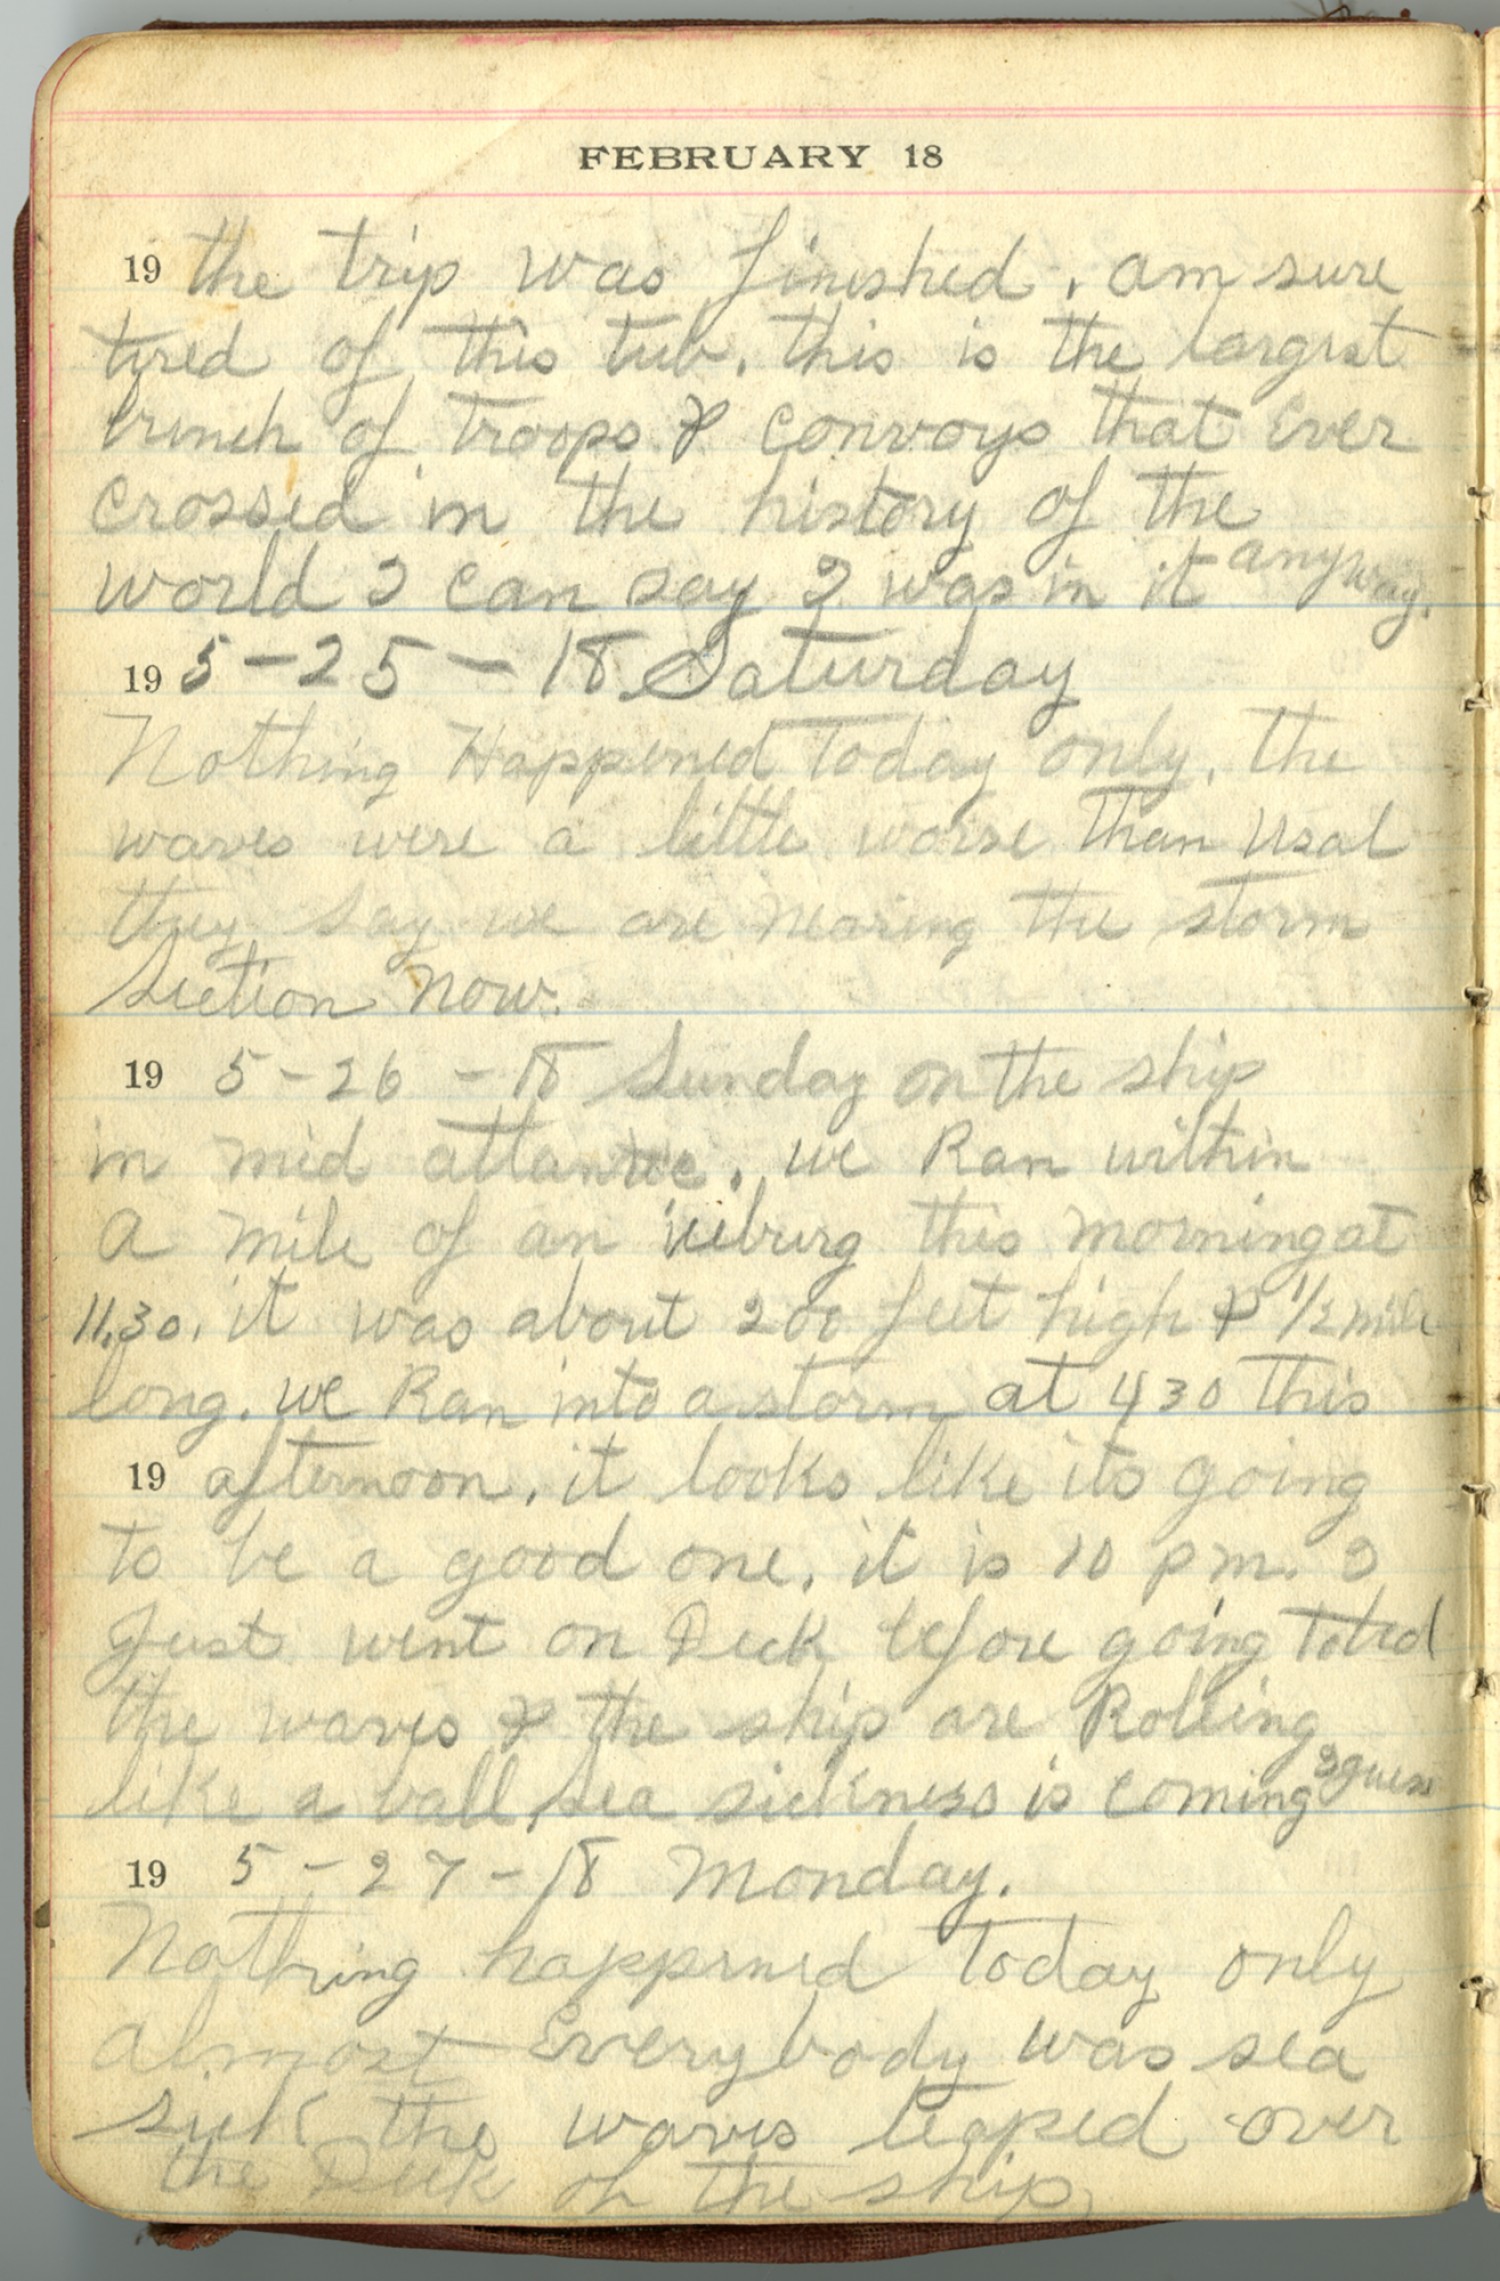 FEBRUARY 18
19 the trip was finished. am sure
tired of this tub. this is the largest
bunch of troops & convoys that Ever
crossed in the history of the
world I can say I was in it anyway.
19 5-25-18 Saturday
Nothing Happened Today only. the
waves were a little worse than usal
they say we are nearing the storm
section now.
19 5-26-18 Sunday on the ship
in mid atlantic. we Ran within
a mile of an iceburg this morning at
11.30. it was about 200 feet high & 1/2 mile
long. we Ran into a storm at 430 this
19 afternoon. it looks like its going
to be a good one. it is 10 pm. I
Just went on Deck before going to bed
the waves & the ship are Rolling
like a ball, sea sickness is coming I guess
19 5-27-18 Monday.
Nothing happened today only
almost Everybody was sea
sick the waves leaped over
the Deck of the ship,